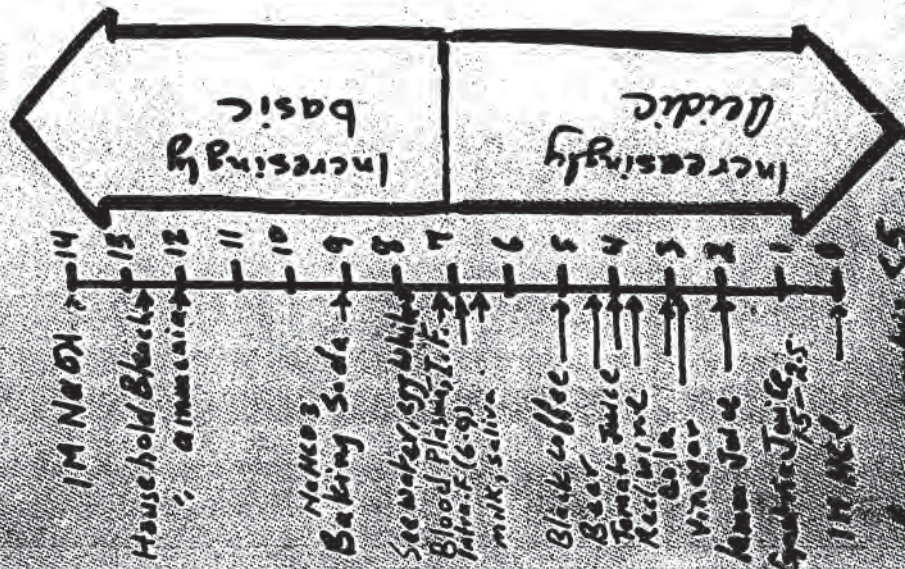 Increasingly
acidic
Incresingly
basic
14
13
12
11
10
9
8
7
6
5
4
3
2
1
0
1M NaOH
Household Bleach
" ammonia
NaHCO3
Baking Soda
Seewater, egg white
Blood Plasma, I.F.
(6.9)
milk, saliva
Black coffee
Beer
Tomato Juice
Red wine
cola
Vinegar
Juice
Gastric Juice
1.5-2.5
1M HCl